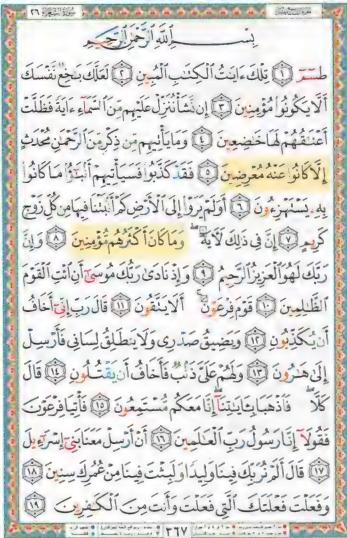 سُورَةُ الشُّعَرَاءِ ٢٦
بِسْمِ اللَّهِ الرَّحْمَٰنِ الرَّحِيمِ
طسٓمٓ ١ تِلْكَ ءَايَٰتُ الْكِتَٰبِ الْمُبِينِ ٢ لَعَلَّكَ بَٰخِعٌ نَّفْسَكَ
أَلَّا يَكُونُوا۟ مُؤْمِنِينَ ٣ إِن نَّشَأْ نُنَزِّلْ عَلَيْهِم مِّنَ السَّمَآءِ ءَايَةً فَظَلَّتْ
أَعْنَٰقُهُمْ لَهَا خَٰضِعِينَ ٤ وَمَا يَأْتِيهِم مِّن ذِكْرٍ مِّنَ الرَّحْمَٰنِ مُحْدَثٍ
إِلَّا كَانُوا۟ عَنْهُ مُعْرِضِينَ ٥ فَقَدْ كَذَّبُوا۟ فَسَيَأْتِيهِمْ أَنۢبَٰٓؤُا۟ مَا كَانُوا۟
بِهِۦ يَسْتَهْزِءُونَ ٦ أَوَلَمْ يَرَوْا۟ إِلَى الْأَرْضِ كَمْ أَنۢبَتْنَا فِيهَا مِن كُلِّ زَوْجٍ
كَرِيمٍ ٧ إِنَّ فِى ذَٰلِكَ لَءَايَةً ۖ وَمَا كَانَ أَكْثَرُهُم مُّؤْمِنِينَ ٨ وَإِنَّ
رَبَّكَ لَهُوَ الْعَزِيزُ الرَّحِيمُ ٩ وَإِذْ نَادَىٰ رَبُّكَ مُوسَىٰٓ أَنِ ائْتِ الْقَوْمَ
الظَّٰلِمِينَ ١٠ قَوْمَ فِرْعَوْنَ ۚ أَلَا يَتَّقُونَ ١١ قَالَ رَبِّ إِنِّىٓ أَخَافُ
أَن يُكَذِّبُونِ ١٢ وَيَضِيقُ صَدْرِى وَلَا يَنطَلِقُ لِسَانِى فَأَرْسِلْ
إِلَىٰ هَٰرُونَ ١٣ وَلَهُمْ عَلَىَّ ذَنۢبٌ فَأَخَافُ أَن يَقْتُلُونِ ١٤ قَالَ
كَلَّا ۖ فَاذْهَبَا بِـَٔايَٰتِنَآ ۖ إِنَّا مَعَكُم مُّسْتَمِعُونَ ١٥ فَأْتِيَا فِرْعَوْنَ
فَقُولَآ إِنَّا رَسُولُ رَبِّ الْعَٰلَمِينَ ١٦ أَنْ أَرْسِلْ مَعَنَا بَنِىٓ إِسْرَٰٓءِيلَ
١٧ قَالَ أَلَمْ نُرَبِّكَ فِينَا وَلِيدًا وَلَبِثْتَ فِينَا مِنْ عُمُرِكَ سِنِينَ ١٨
وَفَعَلْتَ فَعْلَتَكَ الَّتِى فَعَلْتَ وَأَنتَ مِنَ الْكَٰفِرِينَ ١٩
٣٦٧